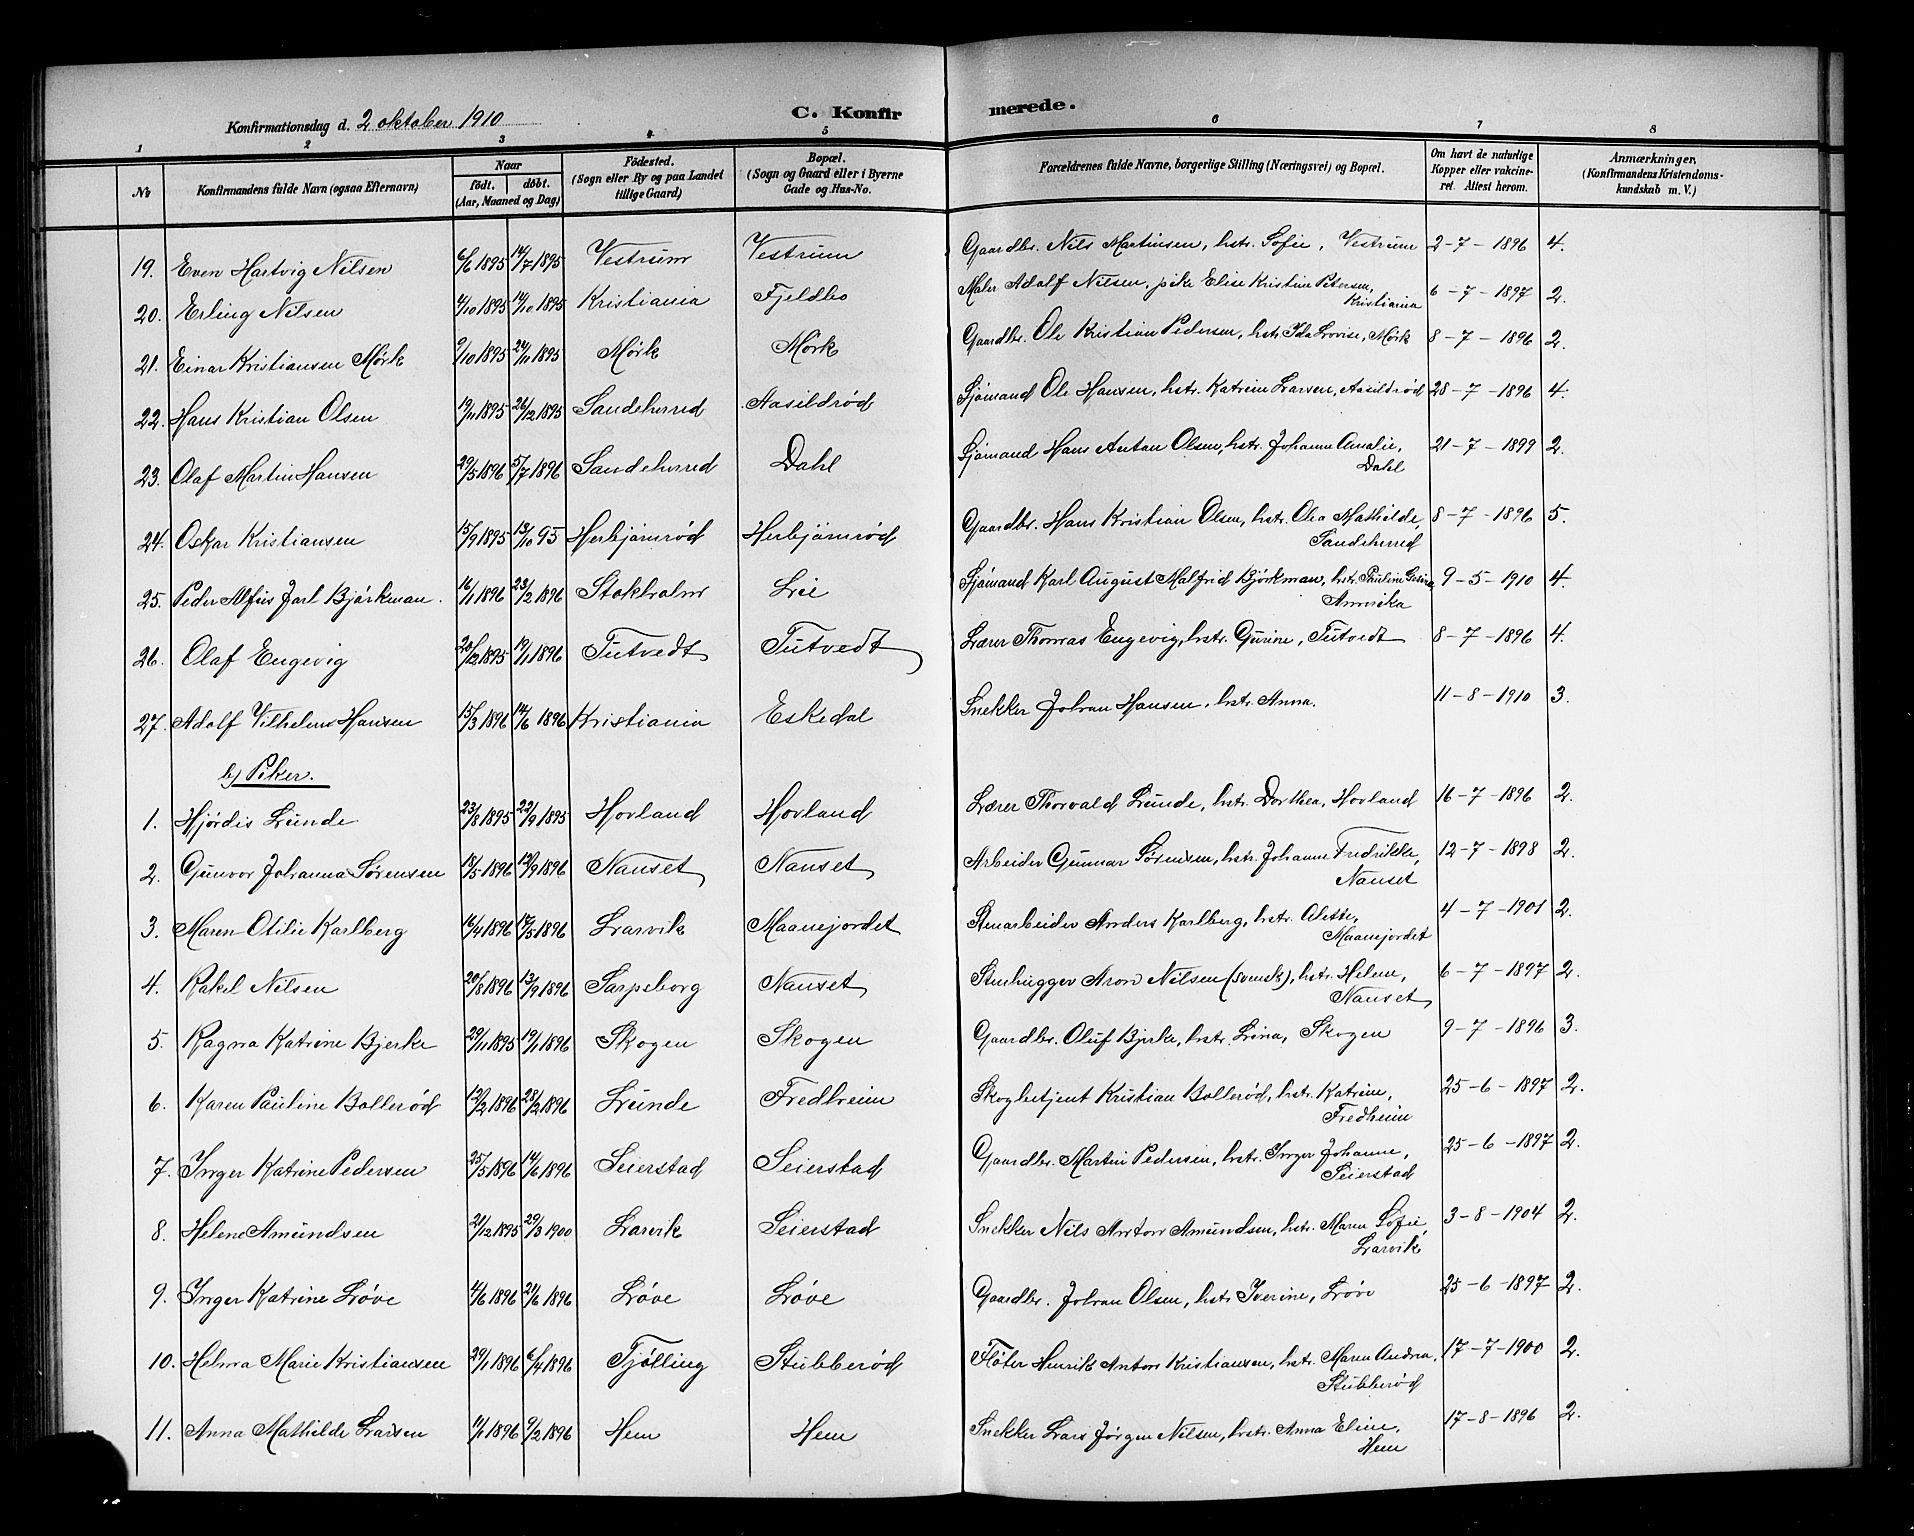 C. Konfir merede.
Konfirmationsdag d. 2 oktober 1910
1 2 3 4 5 6 7 8
No
Konfirmandens fulde Navn (ogsaa Efternavn)
Naar
födt. döbt.
(Aar, Maaned og Dag)
Födested.
(Sogn eller By og paa Landet
tillige Gaard)
Bopæl.
(Sogn og Gaard eller i Byerne
Gade og Hus-No.
Forældrenes fulde Navne, borgerlige Stilling (Næringsvei) og Bopæl.
Om havt de naturlige
Kopper eller vakcine-
ret. Attest herom.
Anmærkninger,
(Konfirmandens Kristendoms-
kundskab m. V.)
19. Even Hartvig Nilsen 6/6 1895 14/7 1895 Vestrum Vestrum Gaardbr. Nils Martinsen, hstr. Sofie, Vestrum 2-7-1896 4.
20. Erling Nilsen 4/10 1895 14/10 1895 Kristiania Fjeldbo Maler Adolf Nilsen, pike Elise Kristine Petersen, 6-7-1897 2.
Kristiania
21. Einar Kristiansen Mørk 9/10 1895 24/11 1895 Mørk Mørk Gaardbr. Ole Kristian Pedersen, hstr. Ida Lovise, Mørk 8-7-1896 2.
22. Hans Kristian Olsen 19/11 1895 26/12 1895 Sandeherred Aasildrød Sjømand Ole Hansen, hstr. Katrine Larsen, Aasildrød 28-7-1896 4.
23. Olaf Martin Hansen 29/5 1896 5/7 1896 Sandeherred Dahl Sjømand Hans Anton Olsen, hstr. Johanne Amalie, 21-7-1899 2.
Dahl
24. Oskar Kristiansen 15/9 1895 13/10 95 Herbjørnrød Herbjørnrød Gaardbr. Hans Kristian Olsen, hstr. Olea Mathilde, 8-7-1896 5.
Sandeherred
25. Peder Alfius Jarl Bjørkman. 16/1 1896 23/2 1896 Stokholm Lie Sjømand Karl August Malfrid Bjørkman, hstr. Pauline 9-5-1910 4.
Amerika
26. Olaf Engevig 20/12 1895 19/1 1896 Tutvedt Tutvedt Lærer Thomas Engevig, hstr. Gurine, Tutvedt 8-7-1896 4.
27. Adolf Vilhelm Hansen 15/3 1896 14/6 1896 Kristiania Eskedal Snekker Johan Hansen, hstr. Anna. 11-8-1910 3.
b) Piker.
1. Hjørdis Lunde 23/8 1895 22/9 1895 Hovland Hovland Lærer Thorvald Lunde, hstr. Dorthea, Hovland 16-7-1896 2.
2. Gunvor Johanna Sørensen 18/5 1896 13/9 1896 Nanset Nanset Arbeider Gunnar Sørensen, hstr. Johanne Fredrikke, 12-7-1898 2.
Nanset
3. Maren Otilie Karlberg 16/4 1896 17/5 1896 Larvik Maanejordet Stenarbeider Anders Karlberg, hstr. Alette, 4-7-1901 2.
Maanejordet
4. Rakel Nilsen 20/8 1896 13/9 1896 Sarpsborg Nanset Stenhugger Aron Nilsen (svensk), hstr. Helene, 6-7-1897 2.
Nanset
5. Ragna Katrine Bjerke 29/11 1895 19/1 1896 Skogen Skogen Gaardbr. Oluf Bjerke, hstr. Lina, Skogen 9-7-1896 3.
6. Karen Pauline Bollerød 12/2 1896 28/2 1896 Lunde Fredheim Skogbetjent Kristian Bollerød, hstr. Katrine, 25-6-1897 2.
Fredheim
7. Inger Katrine Pedersen 25/5 1896 14/6 1896 Seierstad Seierstad Gaardbr. Martin Pedersen, hstr. Inger Johanne, 25-6-1897 2.
Seierstad
8. Helene Amundsen 21/12 1895 29/3 1900 Larvik Seierstad Snekker Nils Anton Amundsen, hstr. Maren Sofie, 3-8-1904 2.
Larvik
9. Inger Katrine Løve 4/6 1896 21/6 1896 Løve Løve Gaardbr. Johan Olsen, hstr. Iverine, Løve 25-6-1897 2.
10. Helma Marie Kristiansen 29/1 1896 6/4 1896 Tjølling Stubberød Fløter Henrik Anton Kristiansen, hstr. Maren Andrea, 17-7-1900 2.
Stubberød
11. Anna Mathilde Larsen 11/1 1896 9/2 1896 Hem Hem Snekker Lars Jørgen Nilsen, hstr. Anna Eline, 17-8-1896 2.
Hem